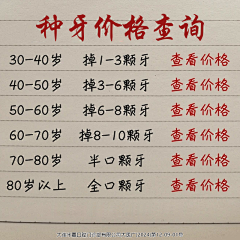 种牙价格查询
30-40岁 掉1-3颗牙 查看价格
40-50岁 掉3-6颗牙 查看价格
50-60岁 掉6-8颗牙 查看价格
60-70岁 掉8-10颗牙 查看价格
70-80岁 半口颗牙 查看价格
80岁以上 全口颗牙 查看价格